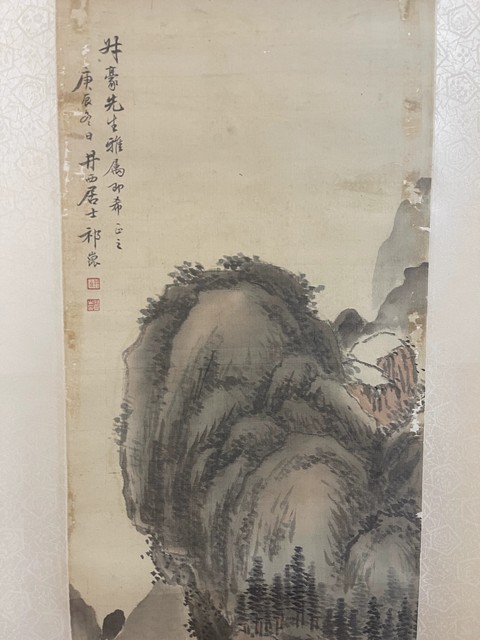 升豪先生雅属即希正之
庚辰冬日井西居士祁崑